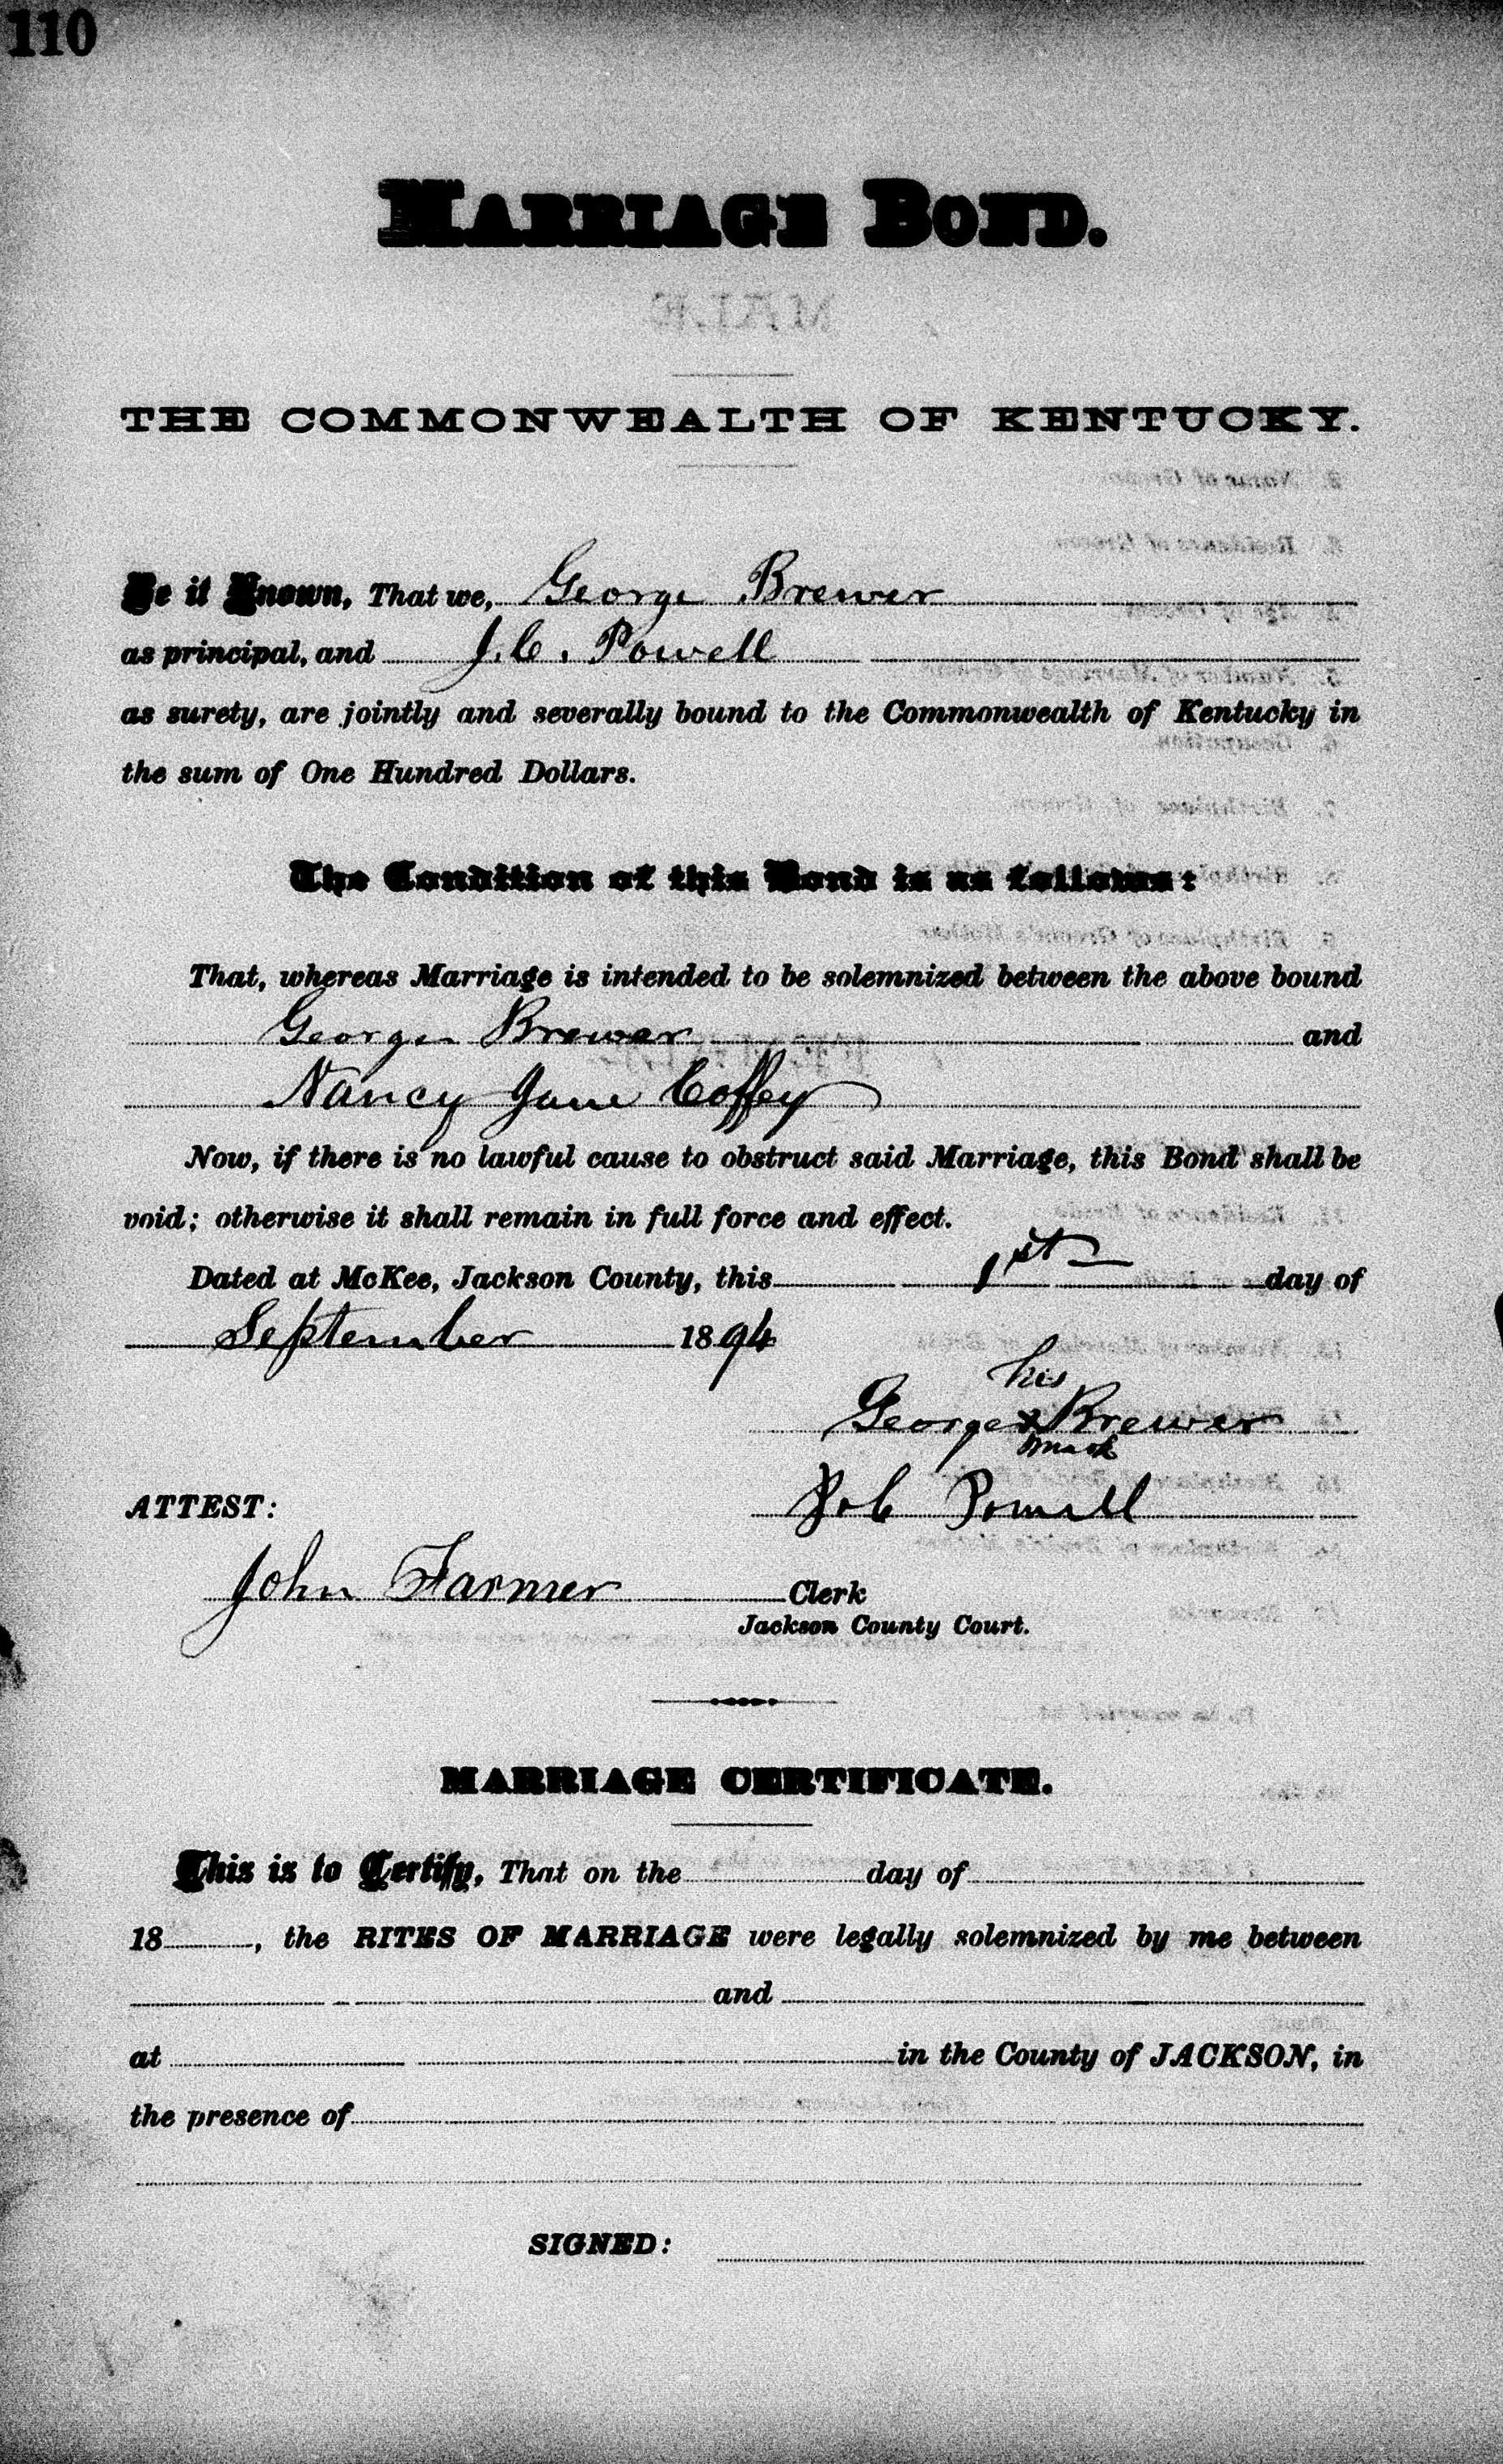 110
MARRIAGE BOND.
THE COMMONWEALTH OF KENTUCKY.
Be it Known, That we, George Brewer
as principal, and J. C. Powell
as surety, are jointly and severally bound to the Commonwealth of Kentucky in
the sum of One Hundred Dollars.
The Condition of this Bond is as follows:
That, whereas Marriage is intended to be solemnized between the above bound
George Brewer and
Nancy Jane Coffey
Now, if there is no lawful cause to obstruct said Marriage, this Bond shall be
void; otherwise it shall remain in full force and effect.
Dated at McKee, Jackson County, this 1st day of
September 1894
his
George x Brewer
mark
ATTEST: Powell
John Farmer Clerk
Jackson County Court.
MARRIAGE CERTIFICATE.
This is to Certify, That on the day of
18 , the RITES OF MARRIAGE were legally solemnized by me between
and
at in the County of JACKSON, in
the presence of
SIGNED: